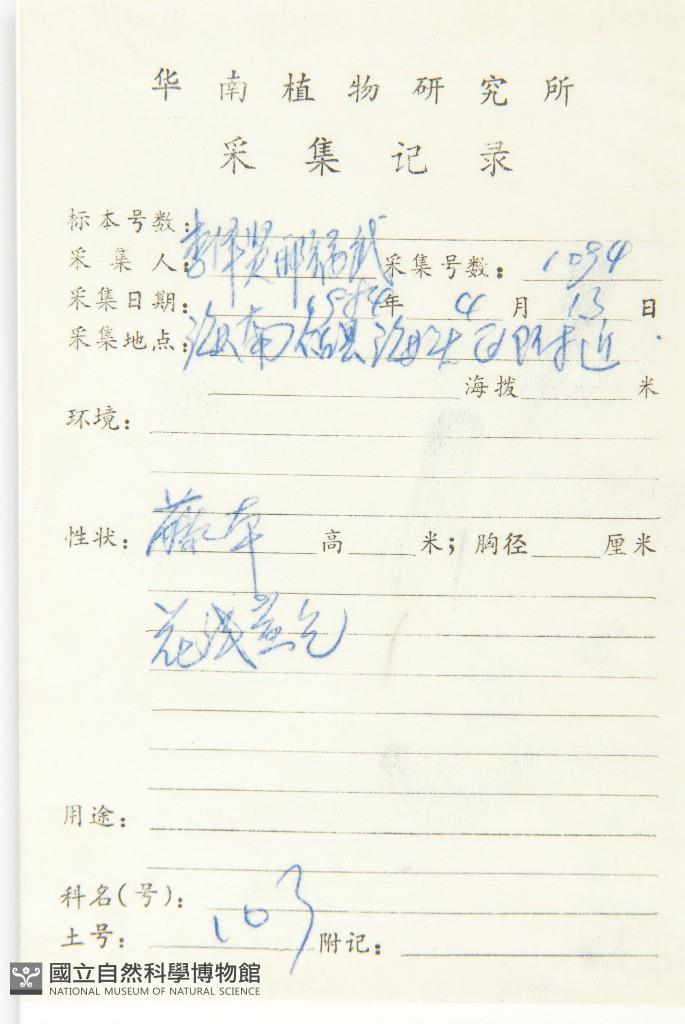 华南植物研究所
采集记录
标本号数：
采集人：李泽贤邢福武 采集号数：1094
采集日期：1984年4月13日
采集地点：海南 县海头 附近.
海拨 米
环境：
性状：藤本 高 米；胸径 厘米
花浅蓝色
用途：
科名(号)：
土号：103 附记：
國立自然科學博物館
NATIONAL MUSEUM OF NATURAL SCIENCE